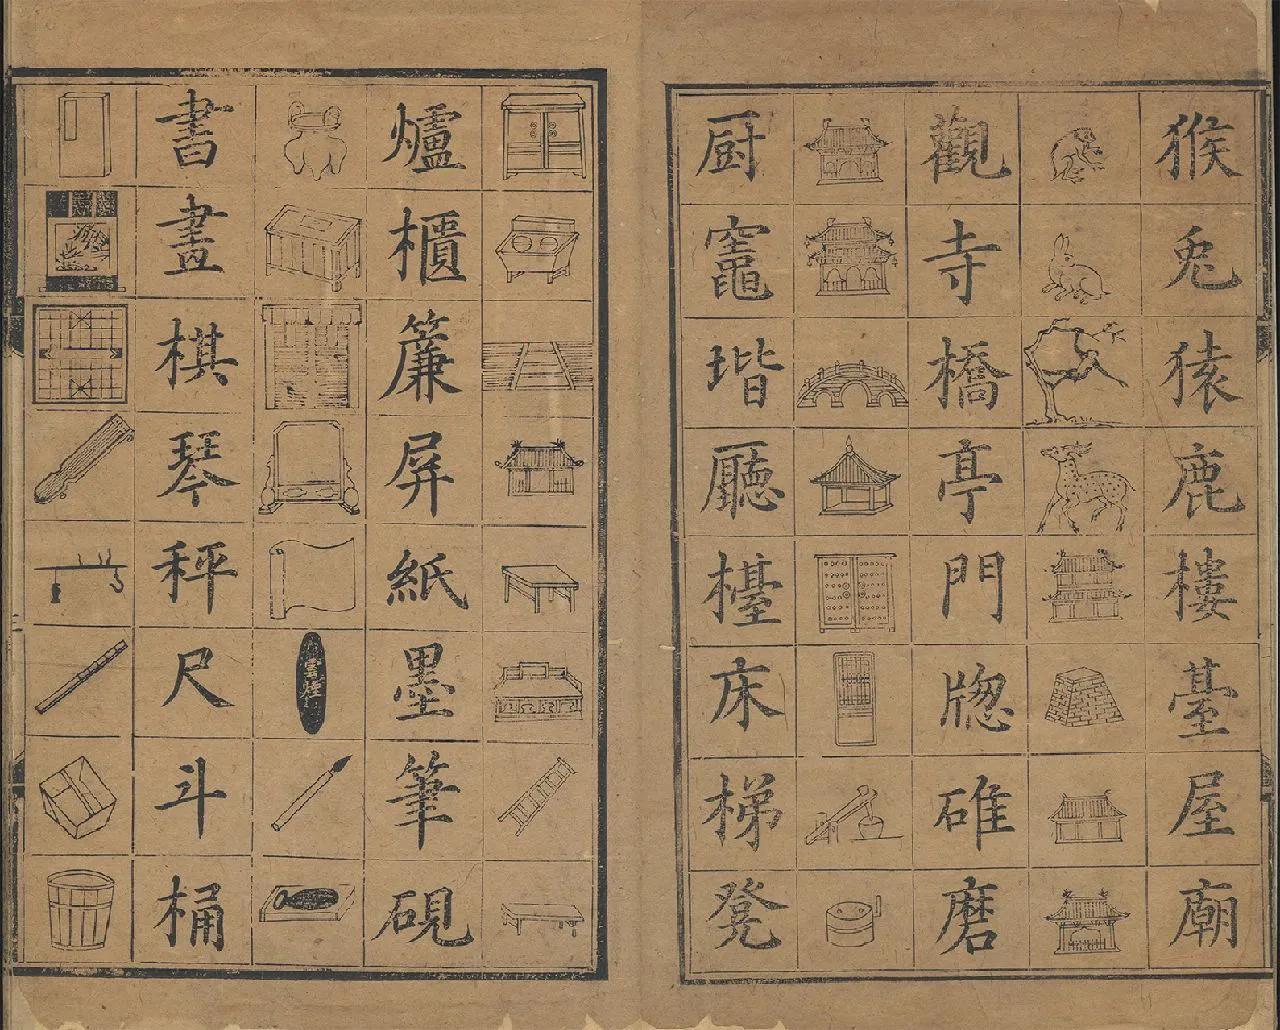 猴兔猿鹿樓臺屋廟
觀寺橋亭門牎碓磨
厨竈堦廳檯床梯凳
爐櫃簾屏紙墨筆硯
雲煙
書畫棋琴秤尺斗桶